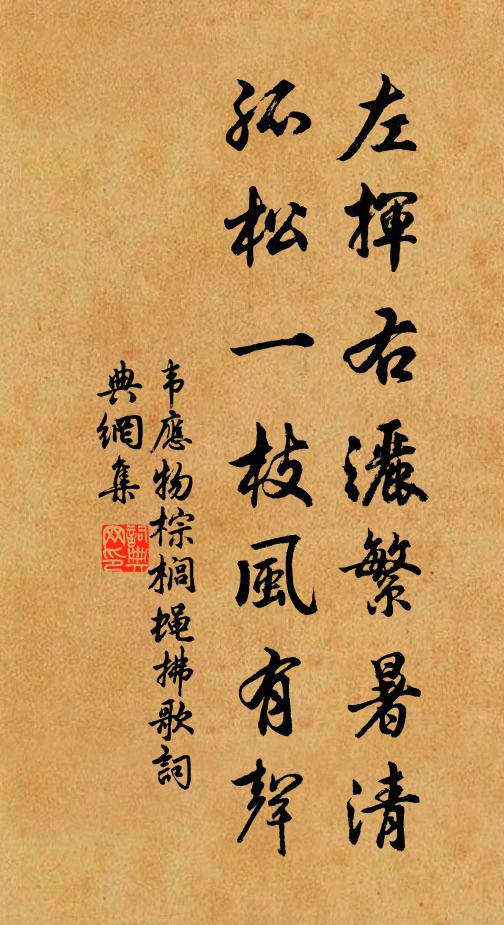 左揮右灑繁暑清
孤松一枝風有聲
韦應物棕榈蝇拂歌詞
典網集
詞典
网印